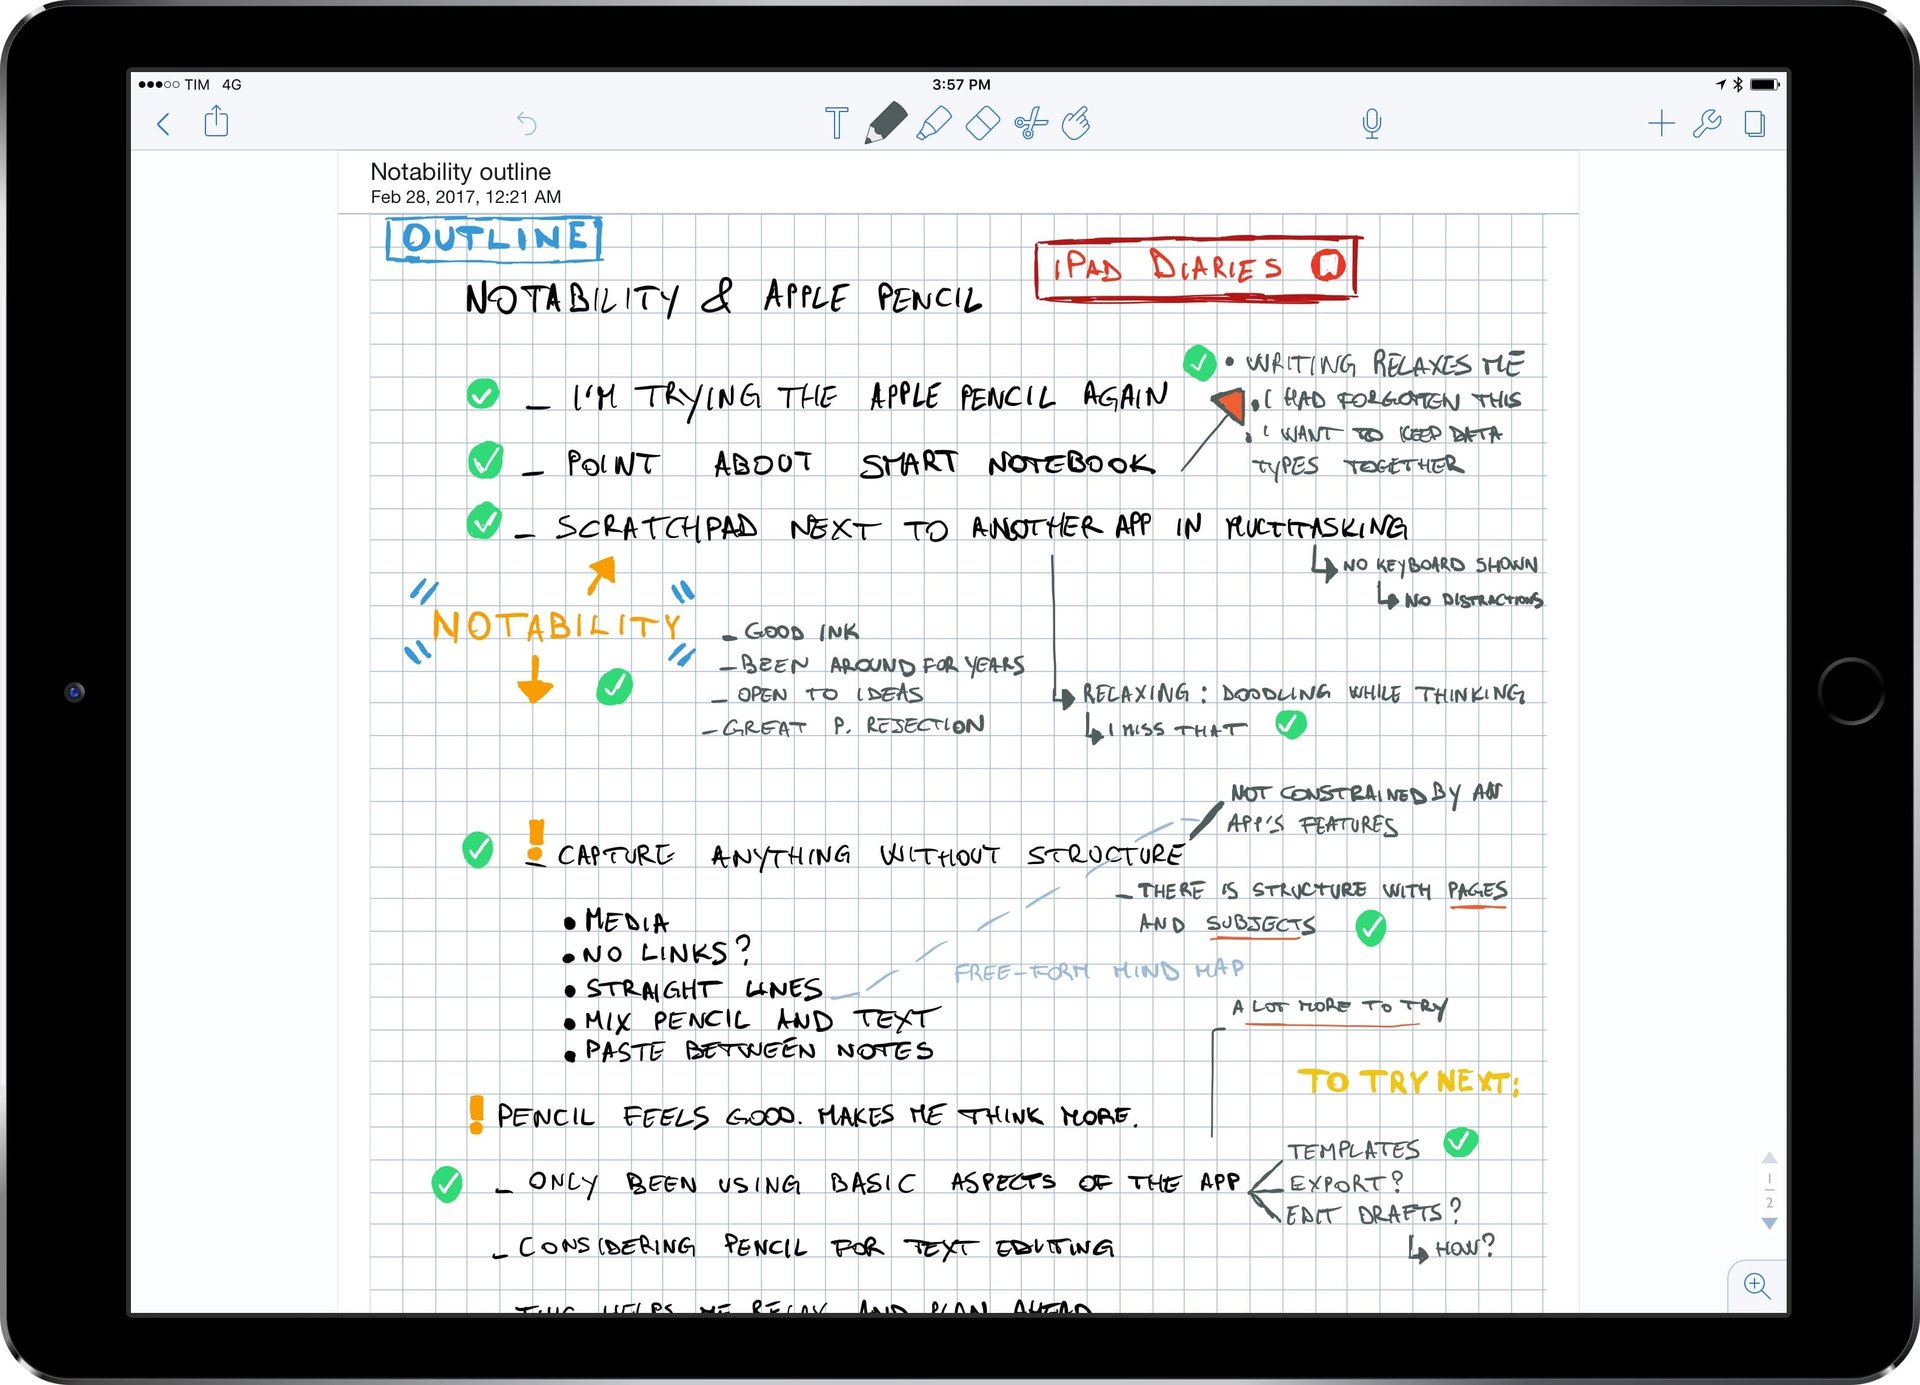 TIM 4G
3:57 PM
Notability outline
Feb 28, 2017, 12:21 AM
OUTLINE
iPAD DIARIES
NOTABILITY & APPLE PENCIL
• WRITING RELAXES ME
– I'M TRYING THE APPLE PENCIL AGAIN
• I HAD FORGOTTEN THIS
• I WANT TO KEEP DATA
TYPES TOGETHER
– POINT ABOUT SMART NOTEBOOK
– SCRATCHPAD NEXT TO ANOTHER APP IN MULTITASKING
NO KEYBOARD SHOWN
NO DISTRACTIONS
NOTABILITY
– GOOD INK
– BEEN AROUND FOR YEARS
– OPEN TO IDEAS
– GREAT P. REJECTION
RELAXING: DOODLING WHILE THINKING
I MISS THAT
NOT CONSTRAINED BY AN
APP'S FEATURES
! – CAPTURE ANYTHING WITHOUT STRUCTURE
– THERE IS STRUCTURE WITH PAGES
AND SUBJECTS
• MEDIA
• NO LINKS?
• STRAIGHT LINES
FREE-FORM MIND MAP
• MIX PENCIL AND TEXT
• PASTE BETWEEN NOTES
A LOT MORE TO TRY
TO TRY NEXT:
! PENCIL FEELS GOOD. MAKES ME THINK MORE.
– ONLY BEEN USING BASIC ASPECTS OF THE APP
TEMPLATES
EXPORT?
EDIT DRAFTS?
HOW?
– CONSIDERING PENCIL FOR TEXT EDITING
– THIS HELPS ME RELAX AND PLAN AHEAD
1
2